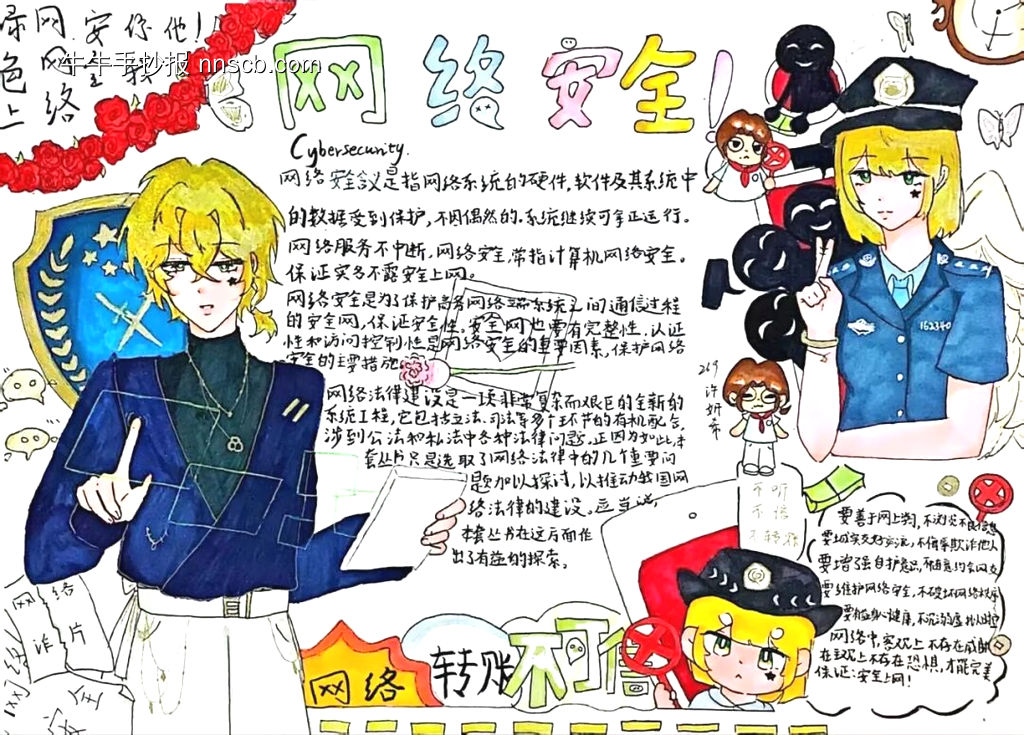 绿网安你他!
色网全我
上络
牛牛手抄报 nnscb.com
网络安全!
Cybersecurity.
网络安全议是指网络系统的硬件,软件及其系统中
的数据受到保护,不因偶然的.系统继续可拿正运行。
网络服务不中断,网络安全,常指计算机网络安全。
保证实务不露安全上网。
网络安全是为了保护商务网络端系统之间通信过程
的安全网,保证安全性。安全网也要有完整性、认证
性和访问控制性是网络安全的重要因素,保护网络
安全的主要措施。
网络法律建设是一项非常复杂而艰巨的全新的
系统工程,它包括立法、司法等多个环节的有机配合,
涉到公法和私法中各种法律问题。正因为如此,本
套丛书只是选取了网络法律中的几个重要问
题加以探讨,以推动我国网
络法律的建设。应当说,
本套丛书在这方面作
出了有益的探索。
162340
269
许妍希
不听
不信
不转账
要善于网上学习,不浏览不良信息
要诚实友好交流,不侮辱欺诈他人
要增强自护意识,不随意约会网友
要维护网络安全,不破坏网络秩序
要有益身心健康,不沉溺虚拟时空
网络中,客观上不存在威胁
在主观上不存在恐惧,才能完美
保证:安全上网!
网络
诈片
安全
网络
转账
不可信